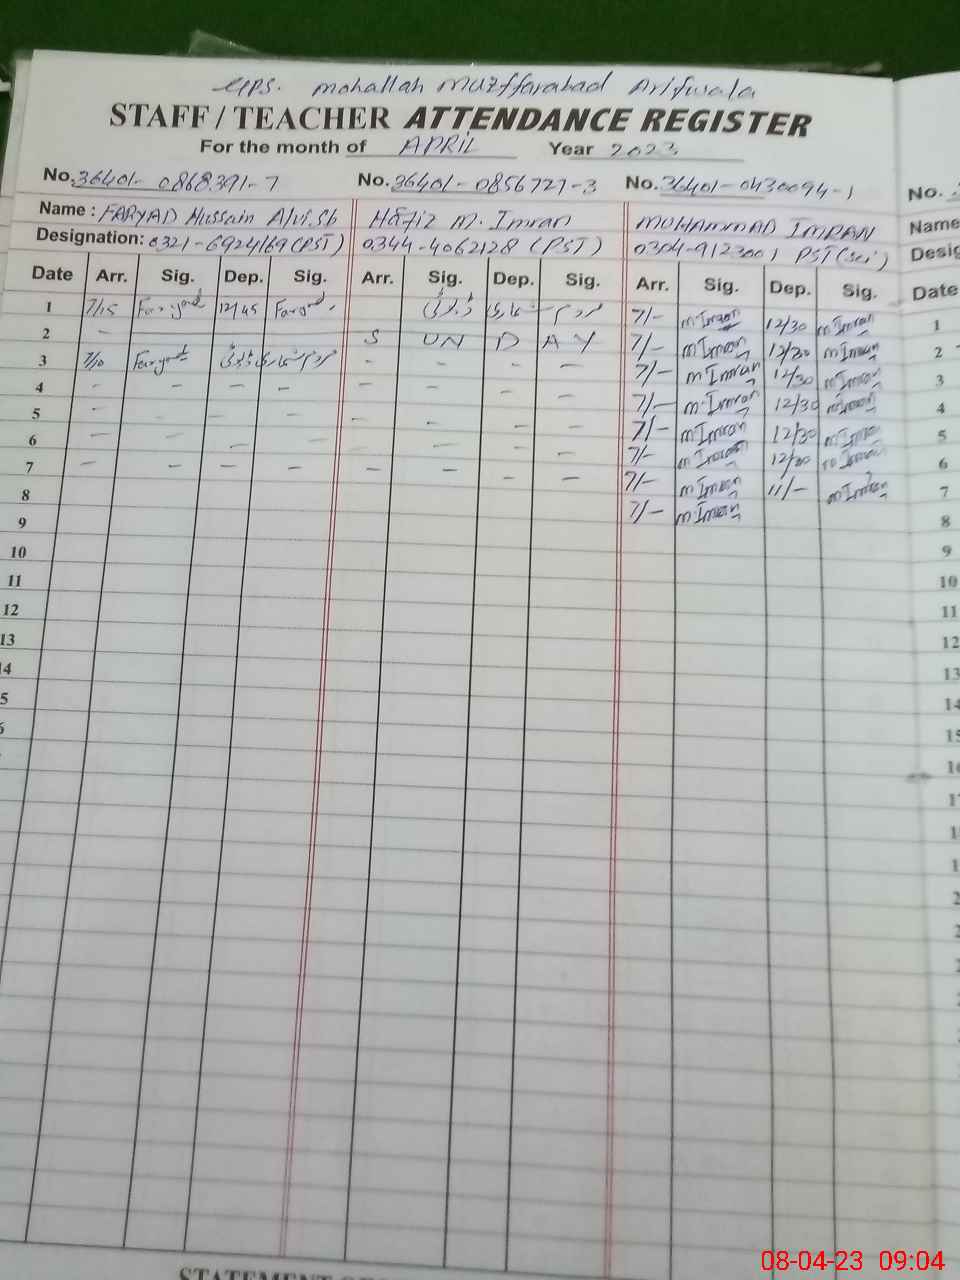 GPS. Mohallah Muzffarabad Arifwala
STAFF / TEACHER ATTENDANCE REGISTER
For the month of APRIL Year 2023
No. 36401-0868391-7 No. 36401-0856727-3 No. 36401-0430094-1 No.
Name : FARYAD Hussain Alvi.Sb Hafiz M. Imran MUHAMMAD IMRAN Name
Designation: 0321-6924169 (PST) 0344-4062128 (PST) 0304-9123001 PST(Sci) Desig
Date Arr. Sig. Dep. Sig. Arr. Sig. Dep. Sig. Arr. Sig. Dep. Sig. Date
1 7/15 Faryad 12/45 Faryad 7/- m.Imran 12/30 m.Imran 1
2 - S UN D A Y 7/- m.Imran 12/30 m.Imran 2
3 7/10 Faryad - - - - 7/- m.Imran 12/30 m.Imran 3
4 - - - - - - - - 7/- m.Imran 12/30 m.Imran 4
5 - - - - - - - - 7/- m.Imran 12/30 m.Imran 5
6 - - - - - - - - 7/- m.Imran 12/30 m.Imran 6
7 - - - - - - - - 7/- m.Imran 11/- m.Imran 7
8 7/- m.Imran 8
9 9
10 10
11 11
12 12
13 13
14 14
5 15
16
STATEMENT
08-04-23 09:04